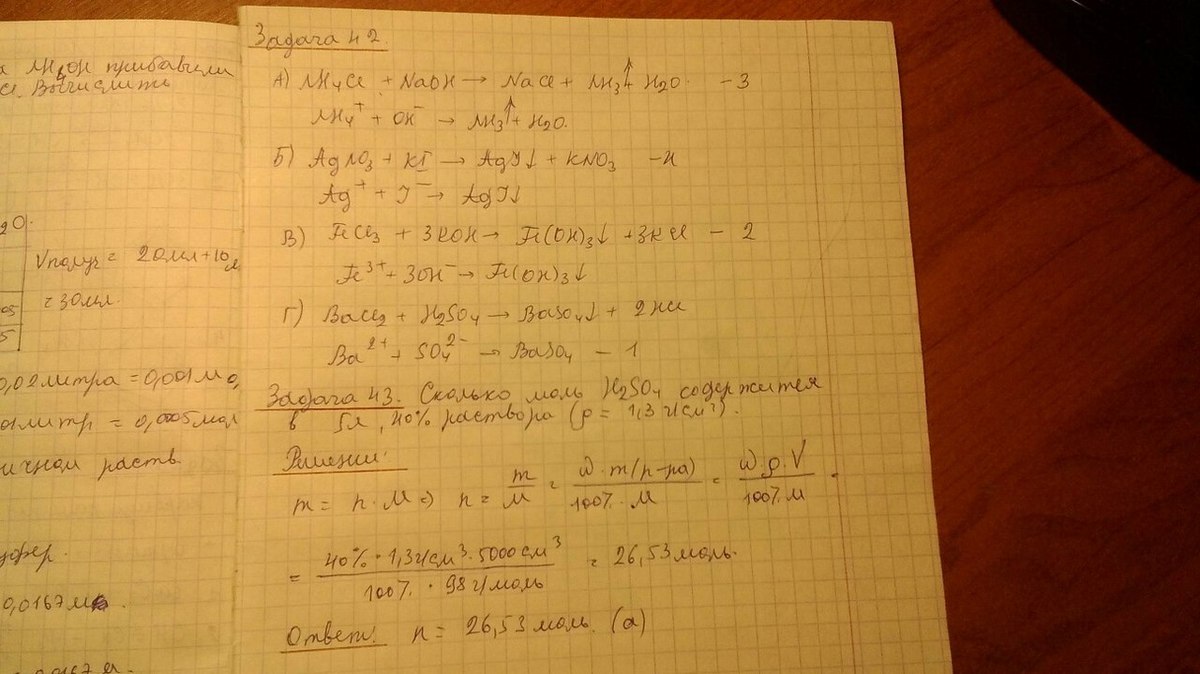 NH4OH прибавили
Вычислить
2O.
Vполуч = 20мл+10
= 30мл.
05
5
0,02литра = 0,001мо
литр = 0,0005мол
ичном раств
уфер.
0,0167м
Задача 42.
А) NH4Cl + NaOH → NaCl + NH3↑ + H2O. - 3
NH4+ + OH- → NH3↑ + H2O.
Б) AgNO3 + KI → AgI↓ + KNO3 - 4
Ag+ + I- → AgI↓
В) FeCl3 + 3KOH → Fe(OH)3↓ + 3KCl - 2
Fe3+ + 3OH- → Fe(OH)3↓
Г) BaCl2 + H2SO4 → BaSO4↓ + 2HCl
Ba2+ + SO42- → BaSO4 - 1
Задача 43. Сколько моль H2SO4 содержится
в 5л, 40% раствора (ρ = 1,3 г/см3).
Решение:
m = n·M ⇒ n = m/M = ω·m(р-ра)/100%·M = ω·ρ·V/100%·M =
= 40%·1,3г/см3·5000см3/100%·98г/моль = 26,53моль.
Ответ: n = 26,53моль. (а)